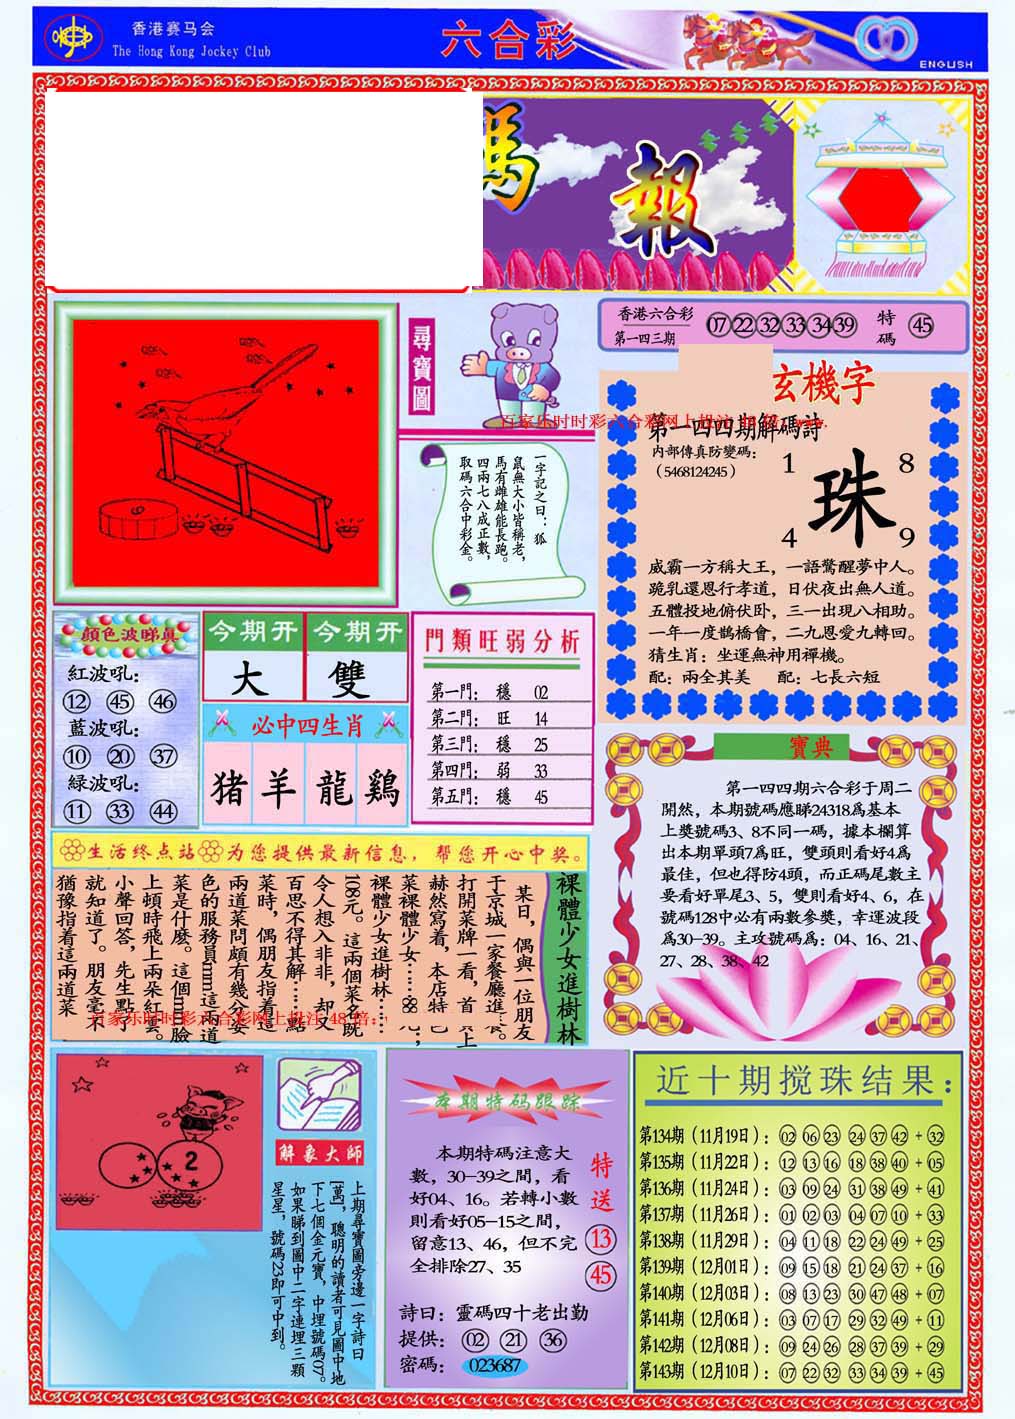 香港赛马会
The Hong Kong Jockey Club
六合彩
ENGLISH
碼
報
香港六合彩
第一四三期
07 22 32 33 34 39
特碼
45
尋寶圖
一字記之曰：狐
鼠無大小皆稱老，
馬有雌雄能長跑。
四兩七八成正數，
取碼六合中彩金。
玄機字
百家乐时时彩六合彩网上投注
第一四四期解碼詩
内部傳真防變碼：
（5468124245）
1
8
珠
4
9
威霸一方稱大王，一語驚醒夢中人。
跪乳還恩行孝道，日伏夜出無人道。
五體投地俯伏卧，三一出現八相助。
一年一度鹊橋會，二九恩愛九轉回。
猜生肖：坐運無神用禪機。
配：兩全其美 配：七長六短
顔色波睇真
紅波吼：
12 45 46
藍波吼：
10 20 37
緑波吼：
11 33 44
今期开
大
今期开
雙
必中四生肖
猪 羊 龍 鷄
門類旺弱分析
第一門： 穩 02
第二門： 旺 14
第三門： 穩 25
第四門： 弱 33
第五門： 穩 45
寶典
第一四四期六合彩于周二
開然，本期號碼應睇24318爲基本
上獎號碼3、8不同一碼，據本欄算
出本期單頭7爲旺，雙頭則看好4爲
最佳，但也得防4頭，而正碼尾數主
要看好單尾3、5，雙則看好4、6，在
號碼128中必有兩數參獎，幸運波段
爲30-39。主攻號碼爲：04、16、21、
27、28、38、42
生活终点站 为您提供最新信息，帮您开心中奖。
裸體少女進樹林
某日，偶與一位朋友
于京城一家餐廳進食。
打開菜牌一看，首頁上
赫然寫着，本店特
菜裸體少女……88元；
裸體少女進樹林……
108元。這兩個菜名既
令人想入非非，却又
百思不得其解……點
菜時，偶朋友指着這
兩道菜問頗有幾分姿
色的服務員mm這兩道
菜是什麽。這個mm臉
上頓時飛上兩朵紅雲。
小聲回答，先生點了
就知道了。朋友毫不
猶豫指着這兩道菜
百家乐时时彩六合彩网上投注 48 倍：
2
解象大师
上期尋寶圖旁邊一字詩曰
[萬]，聰明的讀者可見圖中地
下七個金元寶，中埋號碼07。
如果睇到圖中二字連埋三顆
星星，號碼23即可中到。
本期特码跟踪
本期特碼注意大
數，30-39之間，看
好04、16。若轉小數
則看好05-15之間，
留意13、46，但不完
全排除27、35
特送
13
45
詩曰：靈碼四十老出勤
提供： 02 21 36
密碼： 023687
近十期搅珠结果：
第134期（11月19日）：02 06 23 24 37 42 + 32
第135期（11月22日）：12 13 16 18 38 40 + 05
第136期（11月24日）：03 09 24 31 38 49 + 41
第137期（11月26日）：01 02 03 04 07 10 + 33
第138期（11月29日）：04 11 18 22 24 49 + 25
第139期（12月01日）：09 15 18 21 24 37 + 16
第140期（12月03日）：08 13 23 30 47 48 + 07
第141期（12月06日）：03 07 17 29 32 49 + 11
第142期（12月08日）：09 24 26 28 37 39 + 29
第143期（12月10日）：07 22 32 33 34 39 + 45